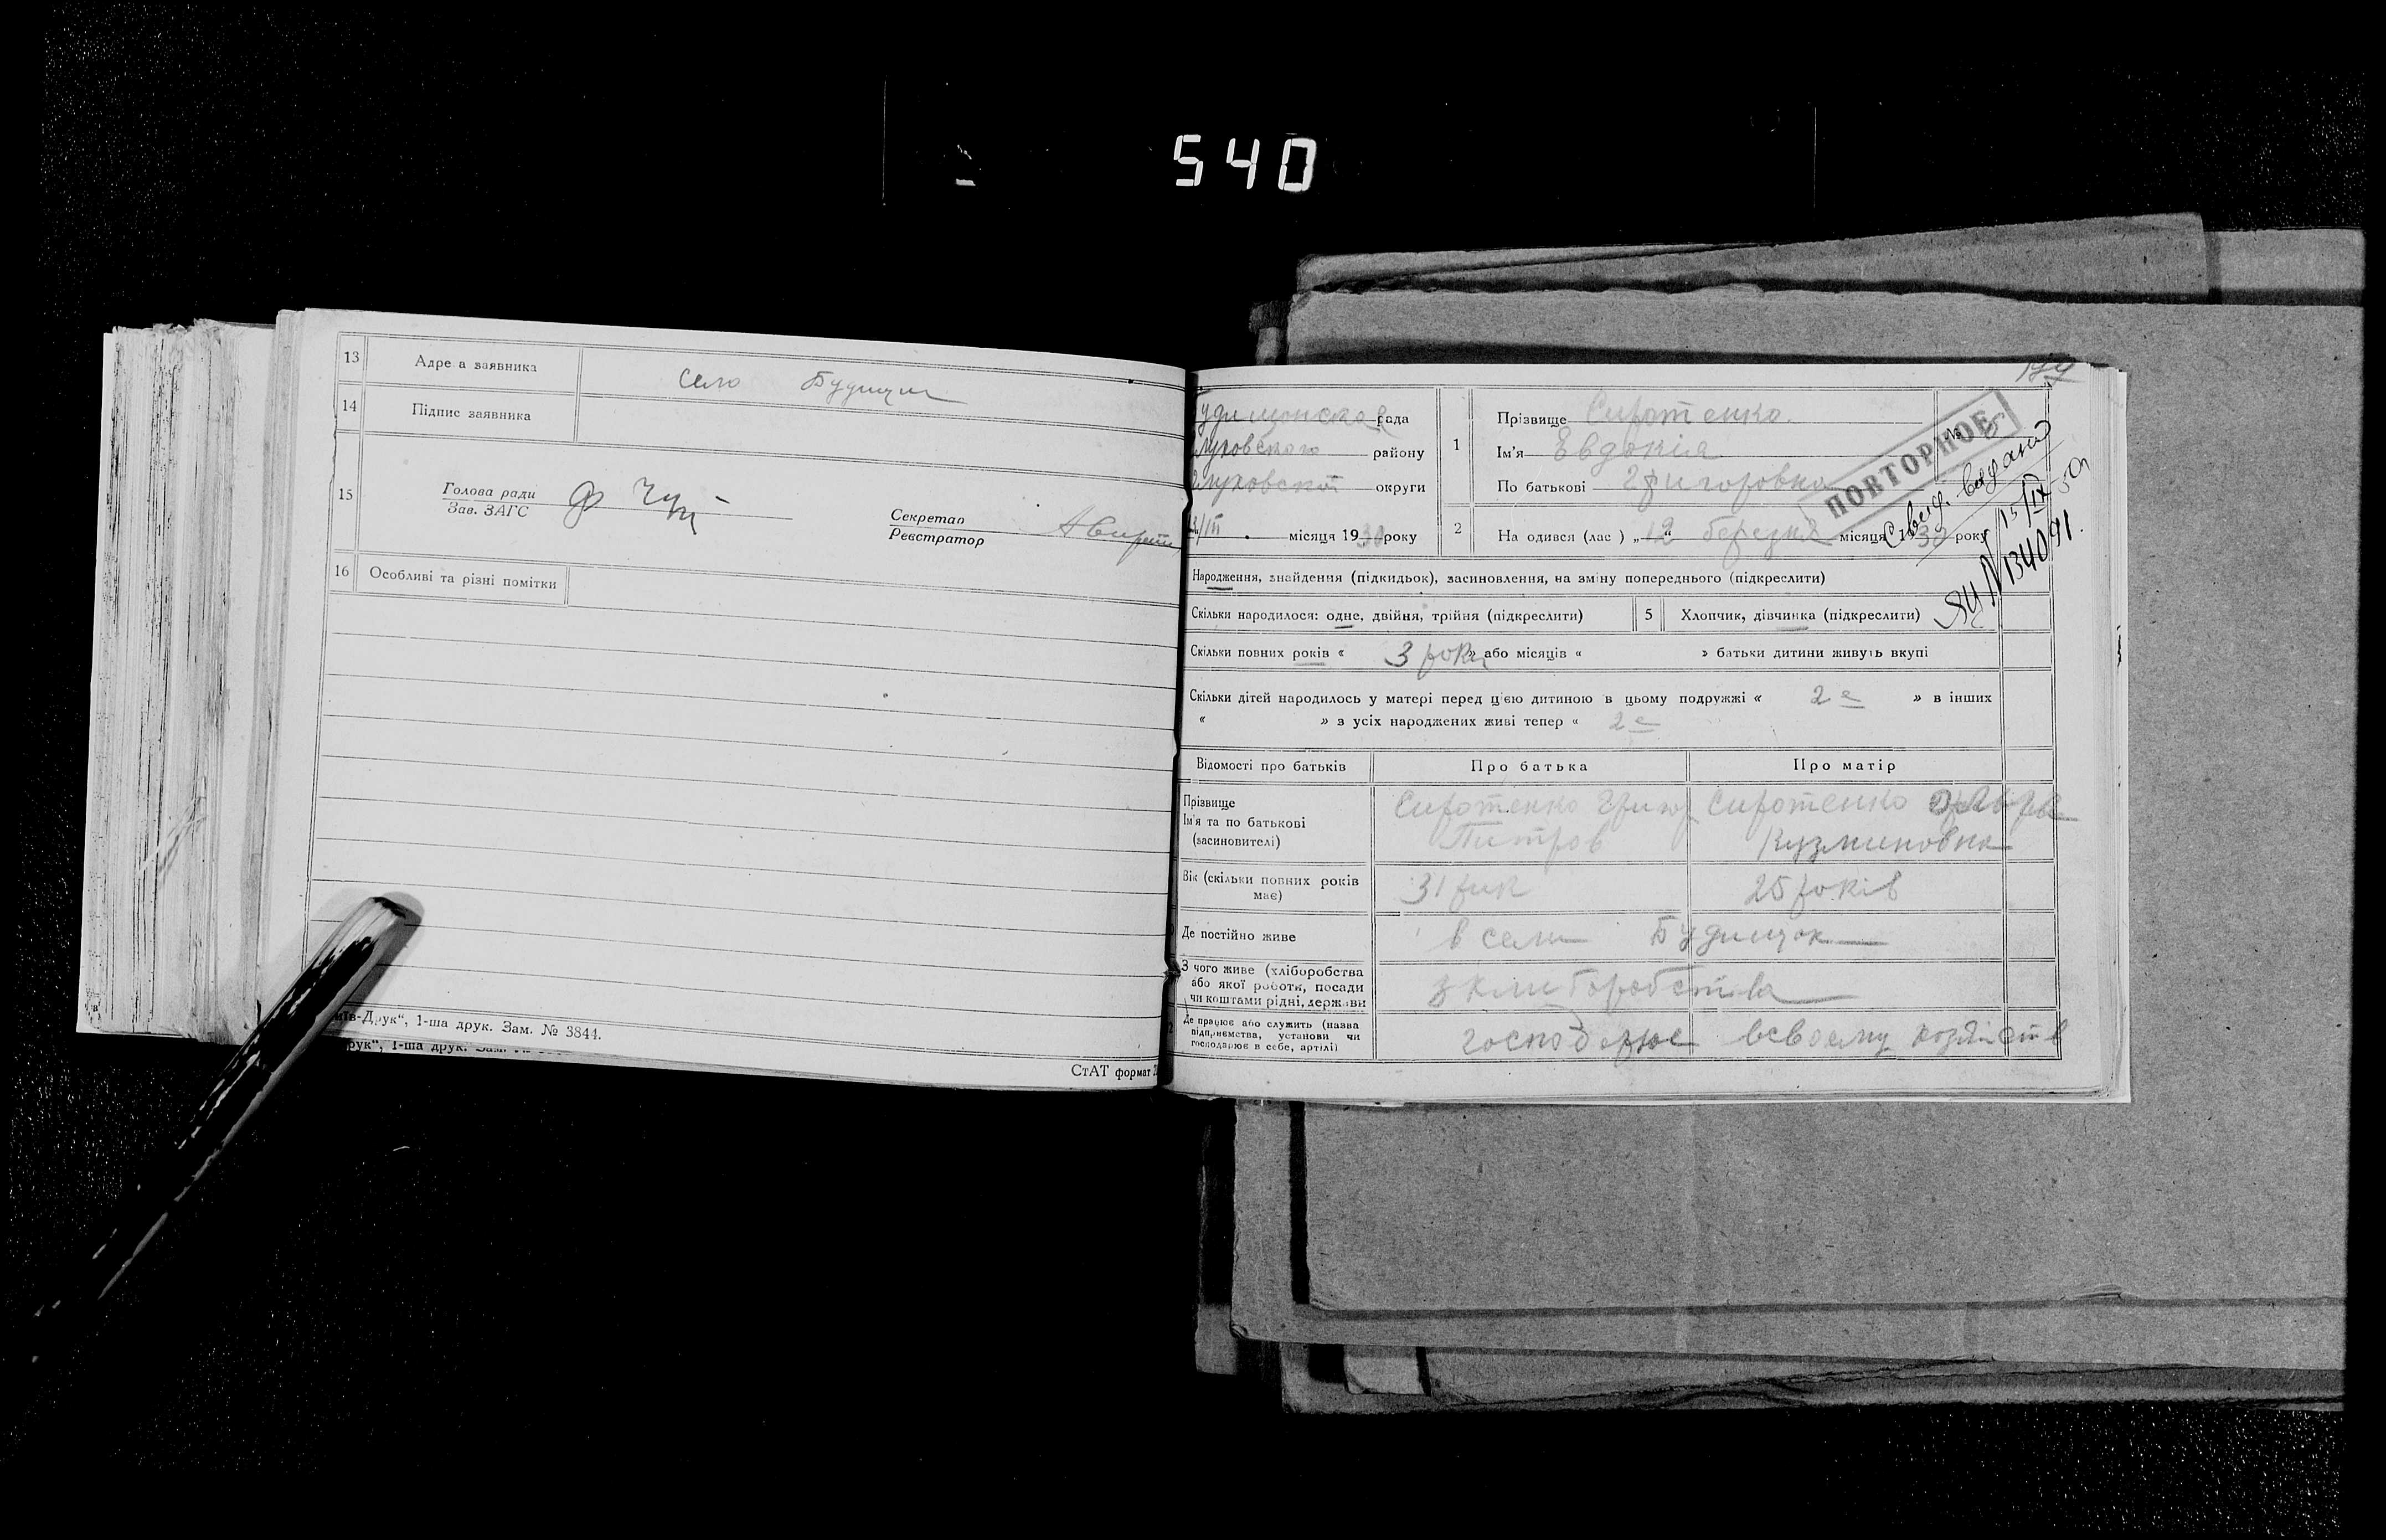 540
13 Адре а заявника село Будищи
14 Підпис заявника
15 Голова ради
Зав. ЗАГС
Секретар
Реєстратор
16 Особливі та різні помітки
Друк“, 1-ша друк. Зам. № 3844.
рук“, 1-ша друк.
СтАТ формат
рада
району
округи
/III місяця 1930 року
1 Прізвище Сиротенко.
Ім'я Евдокія
По батькові Григоровна
№
ПОВТОРНОЕ
Свид. выдано
15/IX 50
ЯЦ N 134091.
2 На одився (лас ) „12“ березня місяця 1930 року
Народження, знайдення (підкидьок), засиновлення, на зміну попереднього (підкреслити)
Скільки народилося: одне, двійня, трійня (підкреслити) 5 Хлопчик, дівчинка (підкреслити)
Скільки повних років « 3 роки » або місяців « » батьки дитини живуть вкупі
Скільки дітей народилось у матері перед цією дитиною в цьому подружжі « 2е » в інших
« » з усіх народжених живі тепер « 2е
Відомості про батьків Про батька Про матір
Прізвище
Ім'я та по батькові
(засиновителі)
Сиротенко Григор
Петров
Сиротенко
Кузминовна
Вік (скільки повних років
має)
31 рик 25 років
Де постійно живе в сели Будищах
З чого живе (хліборобства
або якої роботи, посади
чи коштами рідні, держави
з хлиборобства
Де працює або служить (назва
підприємства, установи чи
господарює в себе, артілі)
господарює всвоему хозяйств